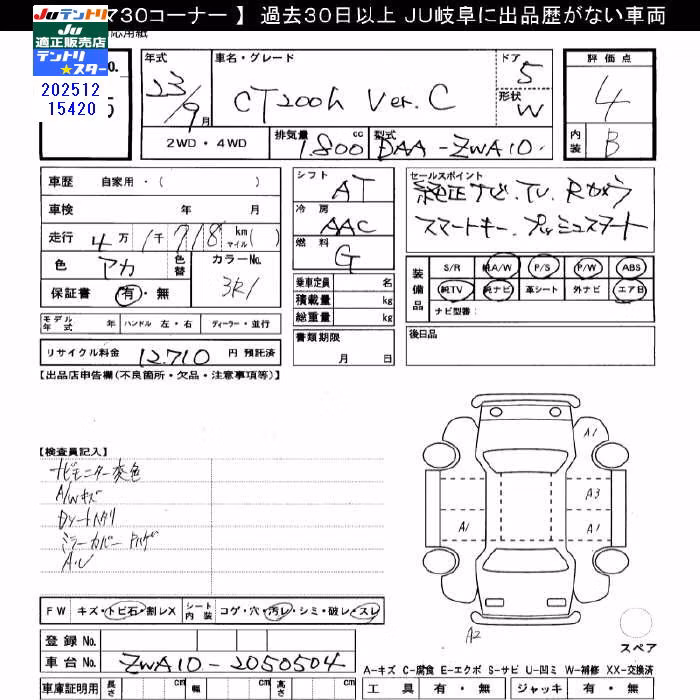 730コーナー 】 過去30日以上 JU岐阜に出品歴がない車両
JUテントリ
JU
適正販売店
テントリ
★スター
202512
15420
年式 23/9月
車名・グレード CT200h Ver.C
ドア 5
形状 W
評価点 4
内装 B
2WD・4WD
排気量 1800 cc
型式 DAA-ZWA10
車歴 自家用・( )
車検 年 月
走行 4万1千718 km マイル( )
色 アカ 色替 カラーNo. 3R1
保証書 有・無
モデル年式 年 ハンドル 左・右 ディーラー・並行
リサイクル料金 12,710 円 預託済
シフト AT
冷房 AAC
燃料 G
乗車定員 名
積載量 kg
総重量 kg
書類期限
月 日
セールスポイント
純正ナビ.TV.Rカメラ
スマートキー.プッシュスタート
装備品
S/R 純A/W P/S P/W ABS
純TV 純ナビ 革シート 外ナビ エアB
ナビ型番:
後日品
【出品店申告欄(不良箇所・欠品・注意事項等)】
【検査員記入】
ナビモニター変色
A/Wキズ
Dシートヘタリ
ミラーカバー
A.U
A1
A3
A1
A1
A2
スペア
FW キズ・トビ石・割レX シート内装 コゲ・穴・汚レ・シミ・破レ・スレ
登録 No.
車台 No. ZWA10-2050504
車庫証明用 長さ cm 幅 cm 高さ cm
A-キズ C-腐食 E-エクボ S-サビ U-凹ミ W-補修 XX-交換済
工具 有・無 ジャッキ 有・無